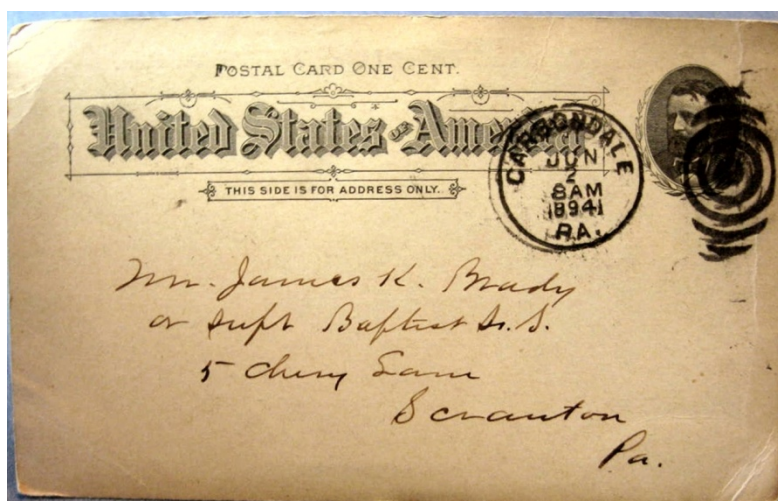 POSTAL CARD ONE CENT.
United States of America
THIS SIDE IS FOR ADDRESS ONLY.
CARBONDALE
JUN
2
8AM
1894
PA.
Mr. James K. Brady
or Supt Baptist S. S.
5 Cherry Lane
Scranton
Pa.